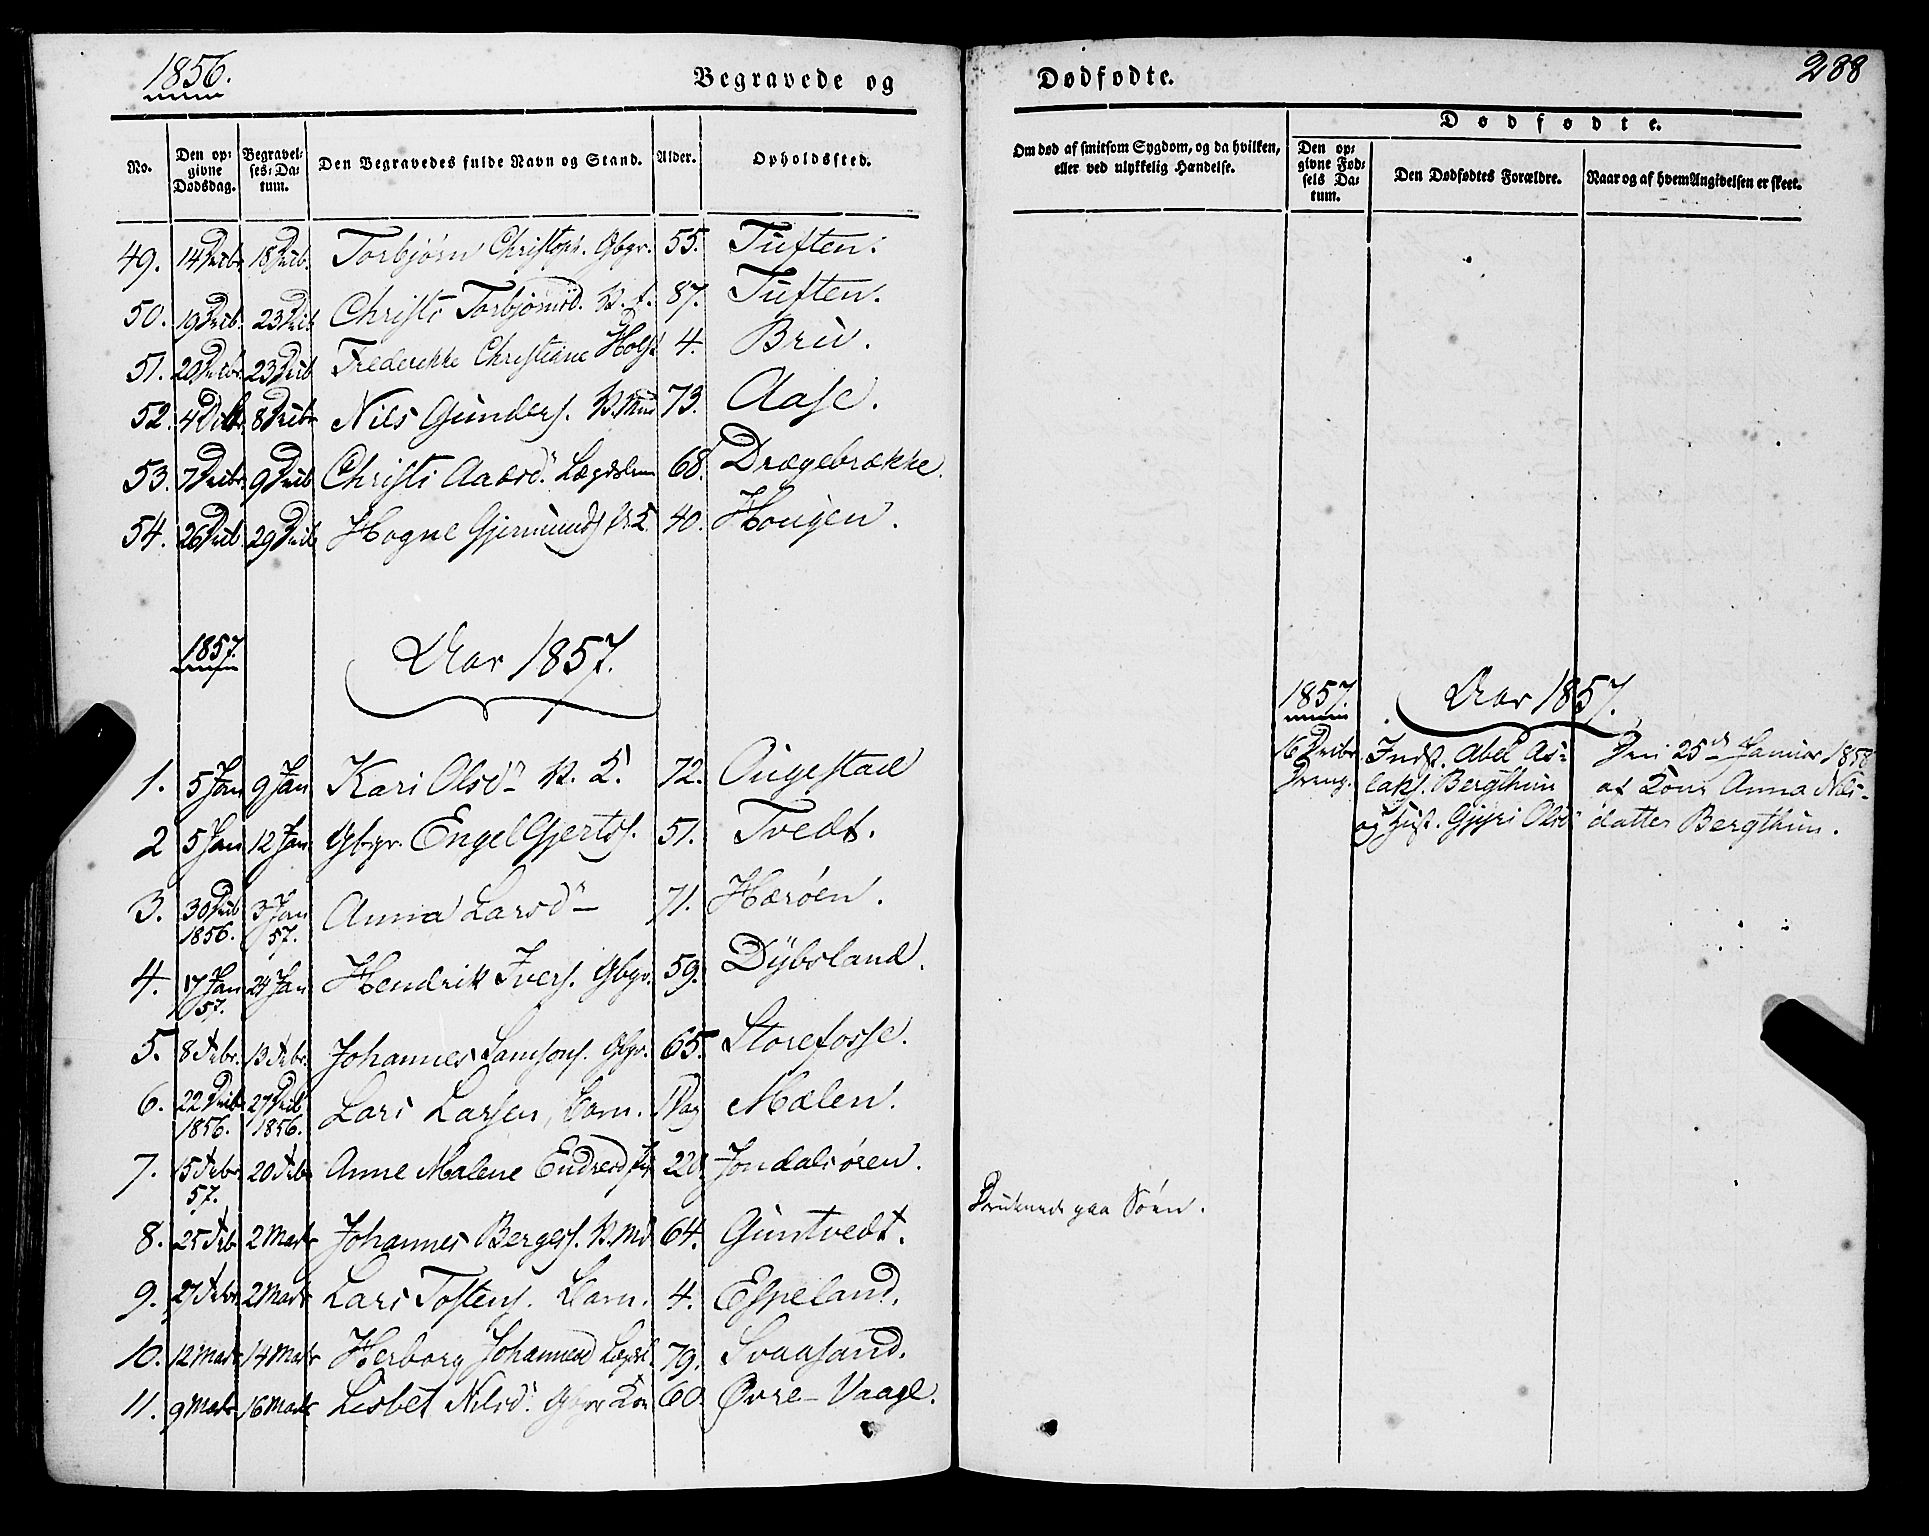 1856.
Begravede og
Dødfødte.
288
No.
Den opgivne Dødsdag.
Begravelses-Datum.
Den Begravedes fulde Navn og Stand.
Alder.
Opholdssted.
Om død af smitsom Sygdom, og da hvilken, eller ved ulykkelig Hændelse.
Dødfødte.
Den opgivne Fødsels Datum.
Den Dødfødtes Forældre.
Naar og af hvem Angivelsen er skeet.
49. 14 Decbr. 18 Decb. Torbjørn Christoph. Gbgr. 55. Tuften.
50. 19 Decb. 23 Decb Christi Torbjørnsd. 87. Tuften.
51. 20 Decbr. 23 Decb Frederikke Christiane Holst 4. Bru.
52. 4 Decbr. 8 Decbr Nils Gunders. K. Md 73. Aase.
53. 7 Decbr. 9 Decb Christi Aadsd. Lægdslem 68. Drægebrække.
54. 26 Decb. 29 Decb Hogne Gjermunds 40. Hougen.
1857. Aar 1857.
1857. Aar 1857.
1. 5 Jan 9 Jan Kari Olsdn K. K. 72. Augestad
2 5 Jan 12 Jan Gbgr. Engel Gjertss. 51. Tvedt.
3. 30 Decb 1856. 3 Jan 57. Anna Larsdn 71. Herøen.
4. 17 Jan 57. 24 Jan Hendrik Ivers. Gbgr. 59. Dybsland.
5. 8 Febr. 13 Febr. Johannes Samsons. Gbgr. 65. Storefosse.
6. 22 Decb 1856. 27 Decb 1856. Lars Larsen, Barn. 1 Dag Mælen.
7. 15 Febr 57. 20 Febr Anne Malene Endresd 22 Jondalsøren.
8. 25 Feb 2 Marts Johannes Bergess. K. Md 64. Guntvedt.
Druknede paa Søen.
9. 27 Febr 2 Marts Lars Tostens. Barn. 4. Espeland.
10. 12 Marts 14 Marts Herborg Johannesd Lægdsl. 79. Svaasand.
11. 9 Marts 16 Marts Lisbet Nilsd. Gbgr Kone 60. Øvre-Vaage.
16 Decbr Dreng. Indst. Abel As- Den 25de Januar 1858
laks. Bergthun af Kone Anna Nils-
og Hust. Gjyri Olsd datter Bergthun.